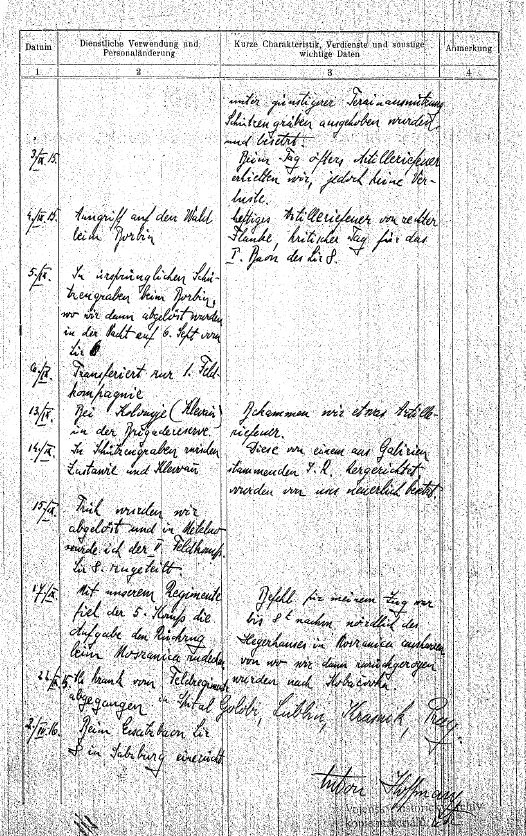 Datum
Dienstliche Verwendung und Personaländerung
Kurze Charakteristik, Verdienste und sonstige wichtige Daten
Anmerkung
1
2
3
4
unter günstigerer Terrainausnützung
Schützengräben ausgehoben wurden,
und besetzt.
3/IX.15.
Beim Tag öfters Artilleriefeuer
erhielten wir, jedoch keine Ver-
luste.
4./IX.15.
Angriff auf den Wald
beim Borbin
heftiges Artilleriefeuer von rechter
Flanke, kritischer Tag für das
I. Baon des Lir 8.
5./IX.
In ursprünglichen Schü-
tzengraben beim Borbin,
wo wir dann abgelöst wurden
in der Nacht auf 6. Sept vom
Lir 6
Transferiert zur 1. Feld-
kompagnie
13/IX.
Bei
in der Brigadereserve.
Bekammen wir etwas Artille-
riefeuer.
14./IX.
In Schützengraben zwischen
Zastawie und Klewan
Diese von einem aus Galizien
stammenden I.R. hergerichtet
wurden von uns neuerlich besetzt.
15/IX.
Früh wurden wir
abgelöst und in
wurde ich der
Lir 8. zugeteilt
17/IX.
Mit unserem Regimente
fiel der 5. Komp die
Aufgabe den Rückzug
beim
Befehl für meinem Zug war
bis 8 nachm. nördlich des
Hegerhauses in
von wo wir dann zurückgezogen
wurden nach
22/IX.15.
Als krank vom Feldregiment
abgegangen in Spital Golobi, Lublin, Krasnik,
2./IV.16.
Beim Ersatzbaon Lir
8 in Salzburg eingerückt
Anton Hoffmann